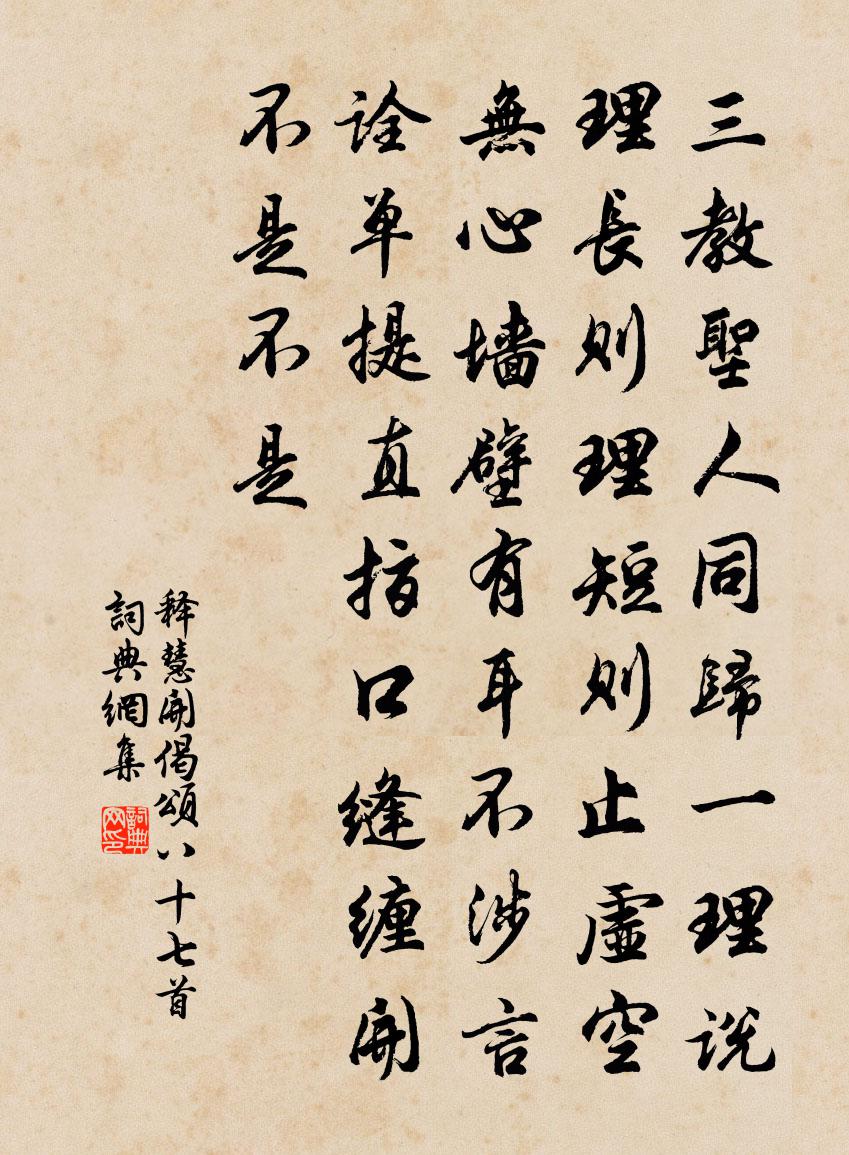 三教聖人同歸一理説
理長則理短則止虛空
無心墻壁有耳不涉言
詮单提直指口缝缠開
不是不是
释慧開偈頌八十七首
詞典網集
詞典网印